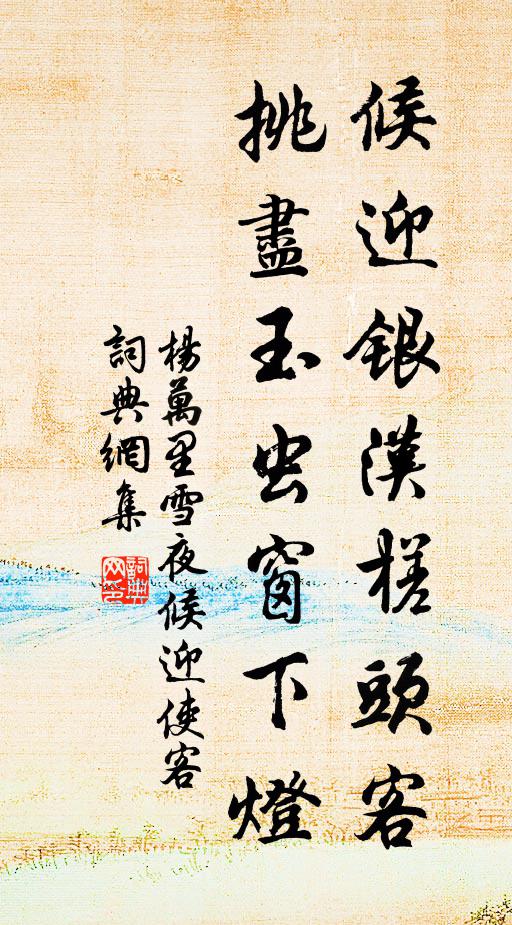 候迎銀漢槎頭客
挑盡玉虫窗下燈
楊萬里雪夜候迎使客
詞典網集
詞典
网